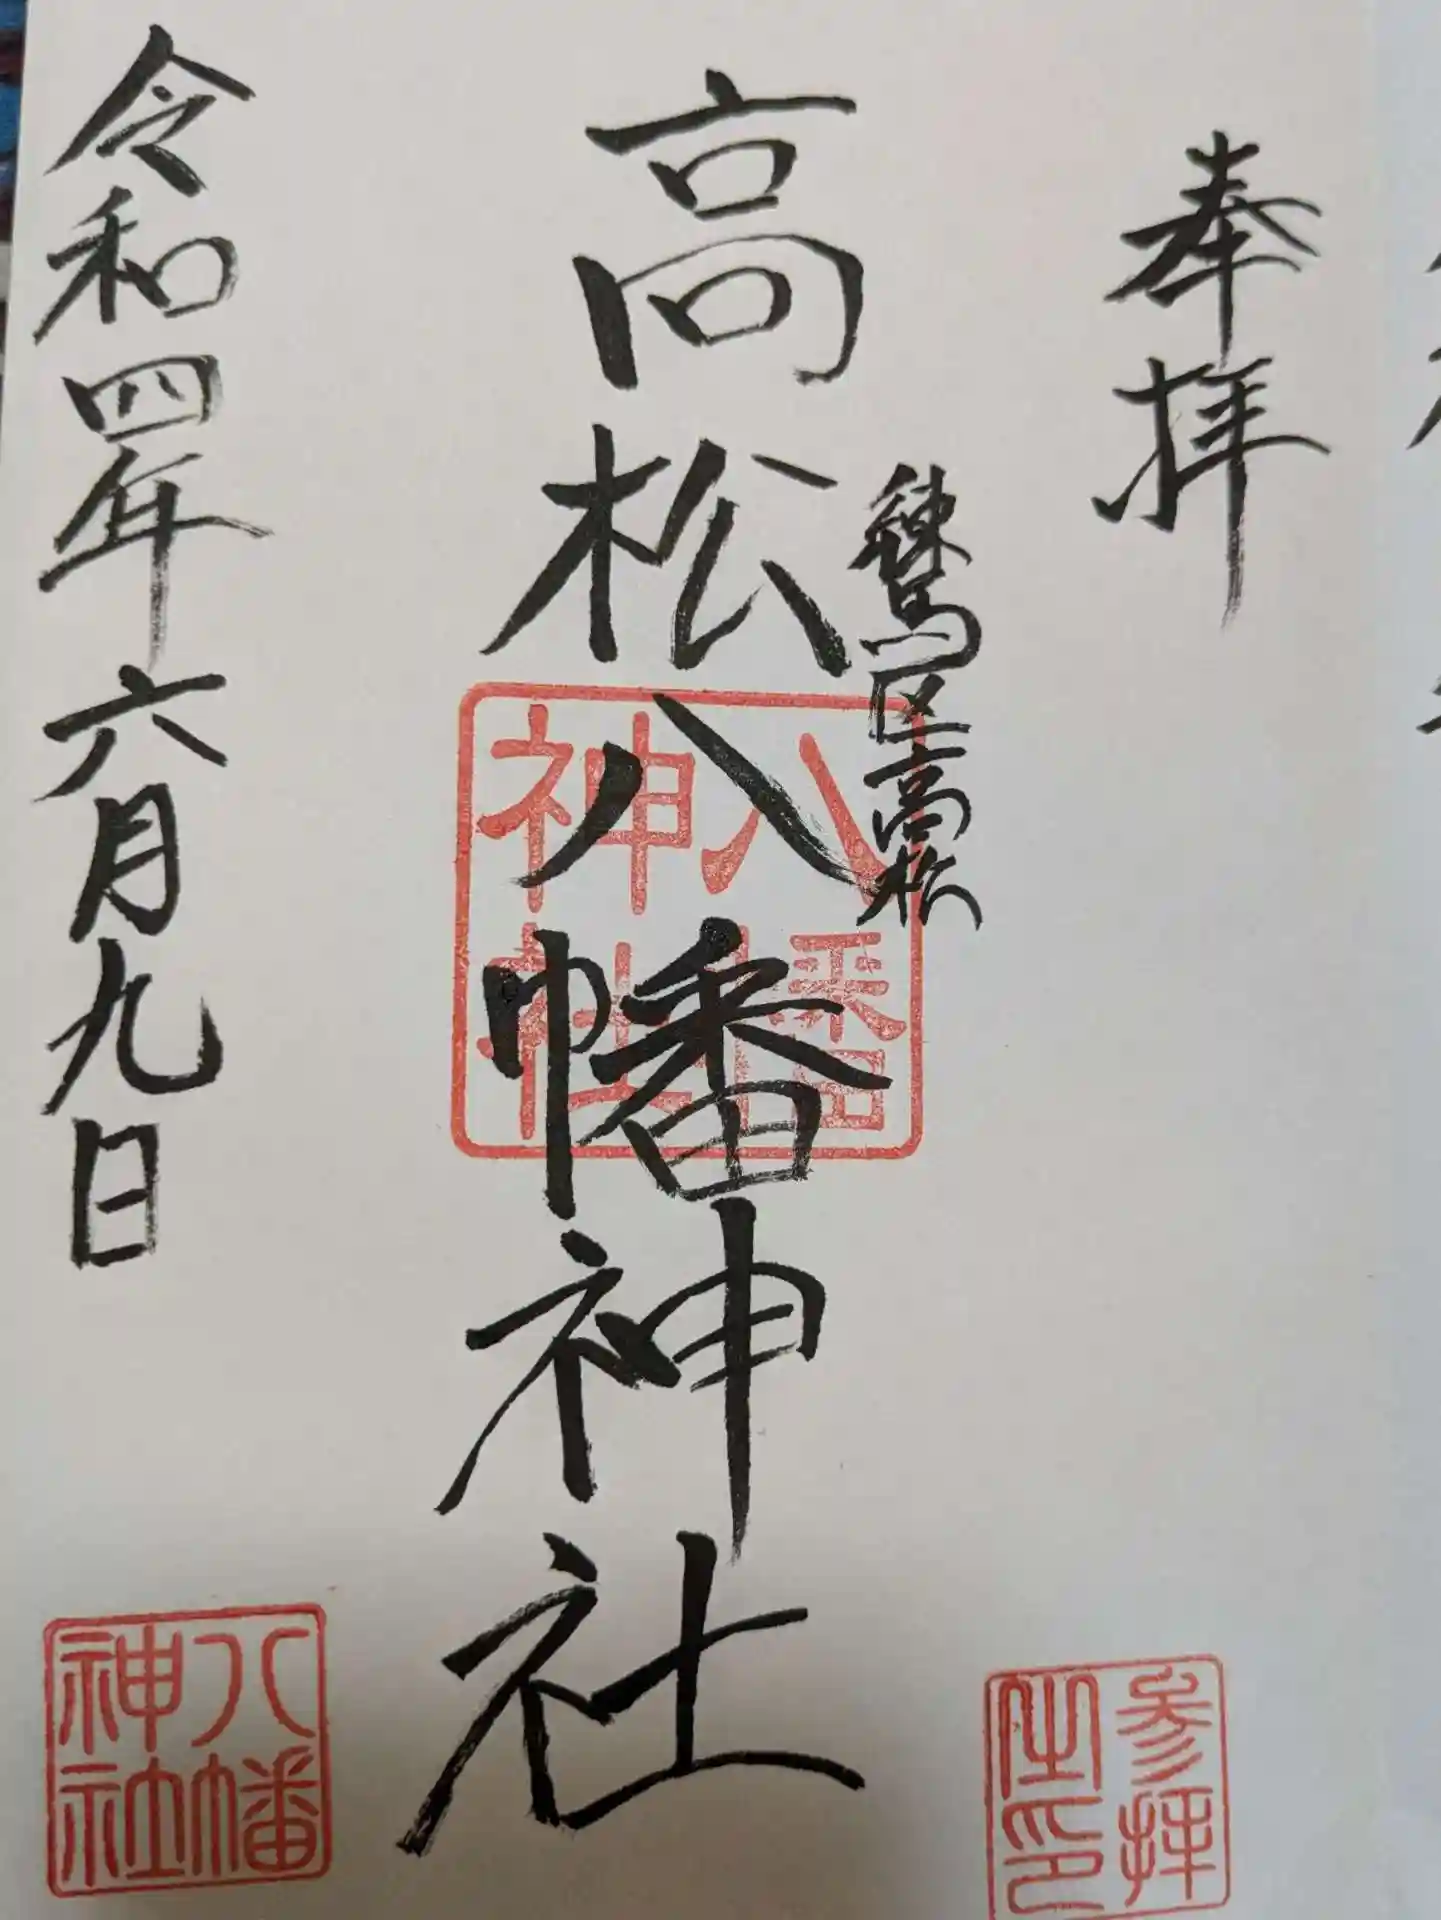 奉拝
練馬区高松
高松八幡神社
令和四年六月九日
八幡
神社
参拝
之印
八幡
神社